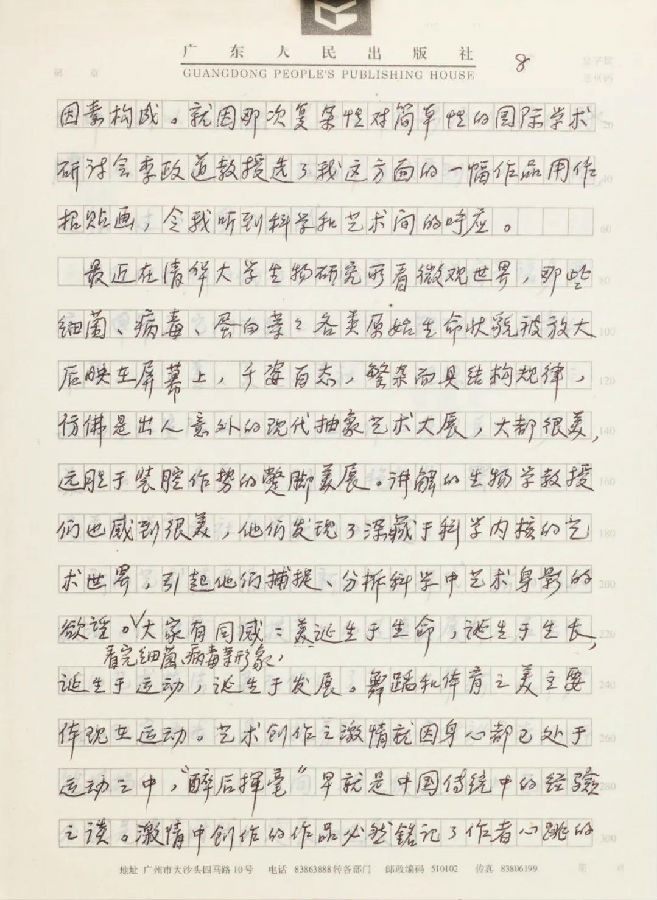 广东人民出版社
GUANGDONG PEOPLE'S PUBLISHING HOUSE
8
因素构成。就因那次复杂性对简单性的国际学术
研讨会李政道教授选了我这方面的一幅作品用作
招贴画，令我听到科学和艺术间的呼应。
最近在清华大学生物研究所看微观世界，那些
细菌、病毒、蛋白等之各类原始生命状貌被放大
后映在屏幕上，千姿百态，繁杂而具结构规律，
仿佛是出人意外的现代抽象艺术大展，大都很美，
远胜于装腔作势的蹩脚美展。讲解的生物学教授
们也感到很美，他们发现了深藏于科学内核的艺
术世界，引起他们捕捉、分析科学中艺术身影的
欲望。大家有同感：美诞生于生命，诞生于生长，
看完细菌、病毒等形象，
诞生于运动，诞生于发展。舞蹈和体育之美主要
体现在运动。艺术创作之激情就因身心都已处于
运动之中，“醉后挥毫”早就是中国传统中的经验
之谈。激情中创作的作品必然铭记了作者心跳的
20
40
60
80
100
120
140
160
180
200
220
240
260
280
300
地址 广州市大沙头四马路10号 电话 83863888转各部门 邮政编码 510102 传真 83806199